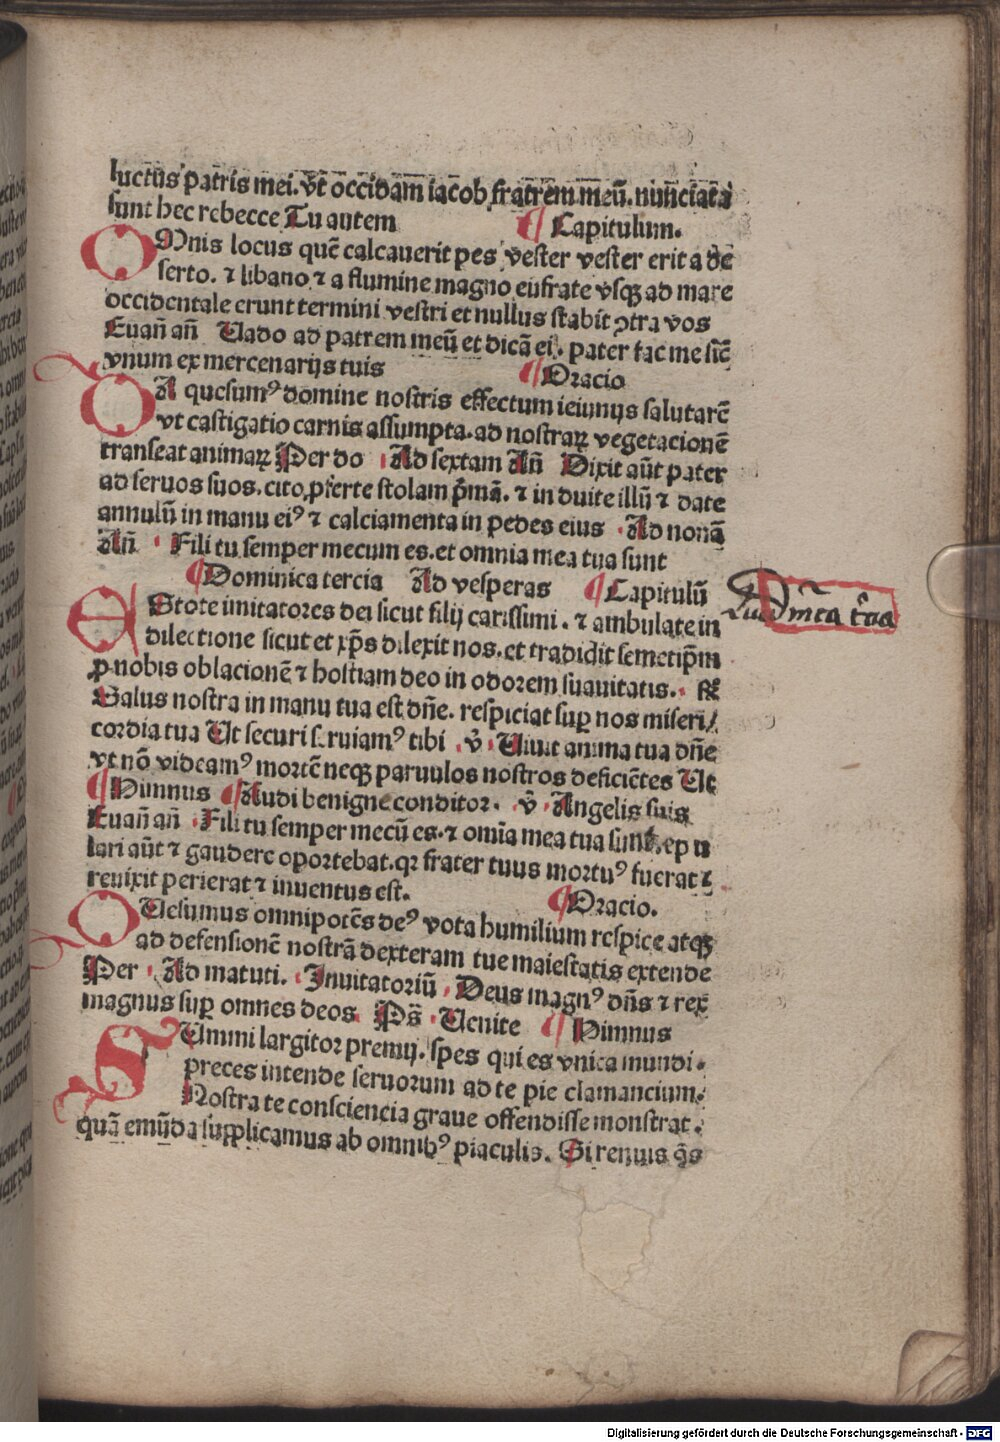 luctus patris mei. vt occidam iacob fratrem meū. nunciata
sunt hec rebecce Tu autem ¶ Capitulum.
OMnis locus quē calcauerit pes vester vester erit a de
serto. ⁊ libano ⁊ a flumine magno eufrate vsqꝫ ad mare
occidentale erunt termini vestri et nullus stabit ꝯtra vos
Euan̄ an̄ Uado ad patrem meū et dicā ei. pater fac me sic̄
vnum ex mercenarijs tuis ¶ Oracio
DA quesumꝰ domine nostris effectum ieiunijs salutarē
vt castigatio carnis assumpta. ad nostraꝝ vegetacionē
transeat animaꝝ Per do Ad sextam An̄ Dixit aūt pater
ad seruos suos. cito ꝓferte stolam p̄mā. ⁊ in duite illū ⁊ date
annulū in manu eiꝰ ⁊ calciamenta in pedes eius Ad nonā
An̄ Fili tu semper mecum es. et omnia mea tua sunt
¶ Dominica tercia Ad vesperas ¶ Capitulū
EStote imitatores dei sicut filij carissimi. ⁊ ambulate in
dilectione sicut et xp̄s dilexit nos. et tradidit semetip̄m
ꝓ nobis oblacionē ⁊ hostiam deo in odorem suauitatis. ℟
Salus nostra in manu tua est dn̄e. respiciat suꝑ nos miseri/
cordia tua Ut securi seruiamꝰ tibi ℣ Uiuit anima tua dn̄e
vt nō videamꝰ mortē neqꝫ paruulos nostros deficiētes Ut
¶ Himnus ¶ Audi benigne conditor. ℣ Angelis suis
Euan̄ an̄ Fili tu semper mecū es. ⁊ om̄ia mea tua sunt. epu
lari aūt ⁊ gaudere oportebat. qꝛ frater tuus mortuꝰ fuerat ⁊
reuixit perierat ⁊ inuentus est. ¶ Oracio.
QUesumus omnipotēs deꝰ vota humilium respice atqꝫ
ad defensionē nostrā dexteram tue maiestatis extende
Per Ad matuti. Inuitatoriū Deus magnꝰ dn̄s ⁊ rex
magnus suꝑ omnes deos Ps̄ Uenite ¶ Himnus
SUmmi largitor premij. spes qui es vnica mundi.
preces intende seruorum ad te pie clamancium.
Nostra te consciencia graue offendisse monstrat.
quā emūda supplicamus ab omnibꝰ piaculis. Si renuis q̄s
mea tua
Digitalisierung gefördert durch die Deutsche Forschungsgemeinschaft - DFG